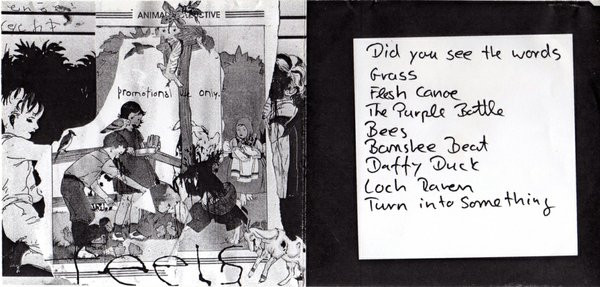 ANIMAL COLLECTIVE
promotional use only.
feels
Did you see the words
Grass
Flesh Canoe
The Purple Bottle
Bees
Banshee Beat
Daffy Duck
Loch Raven
Turn into Something